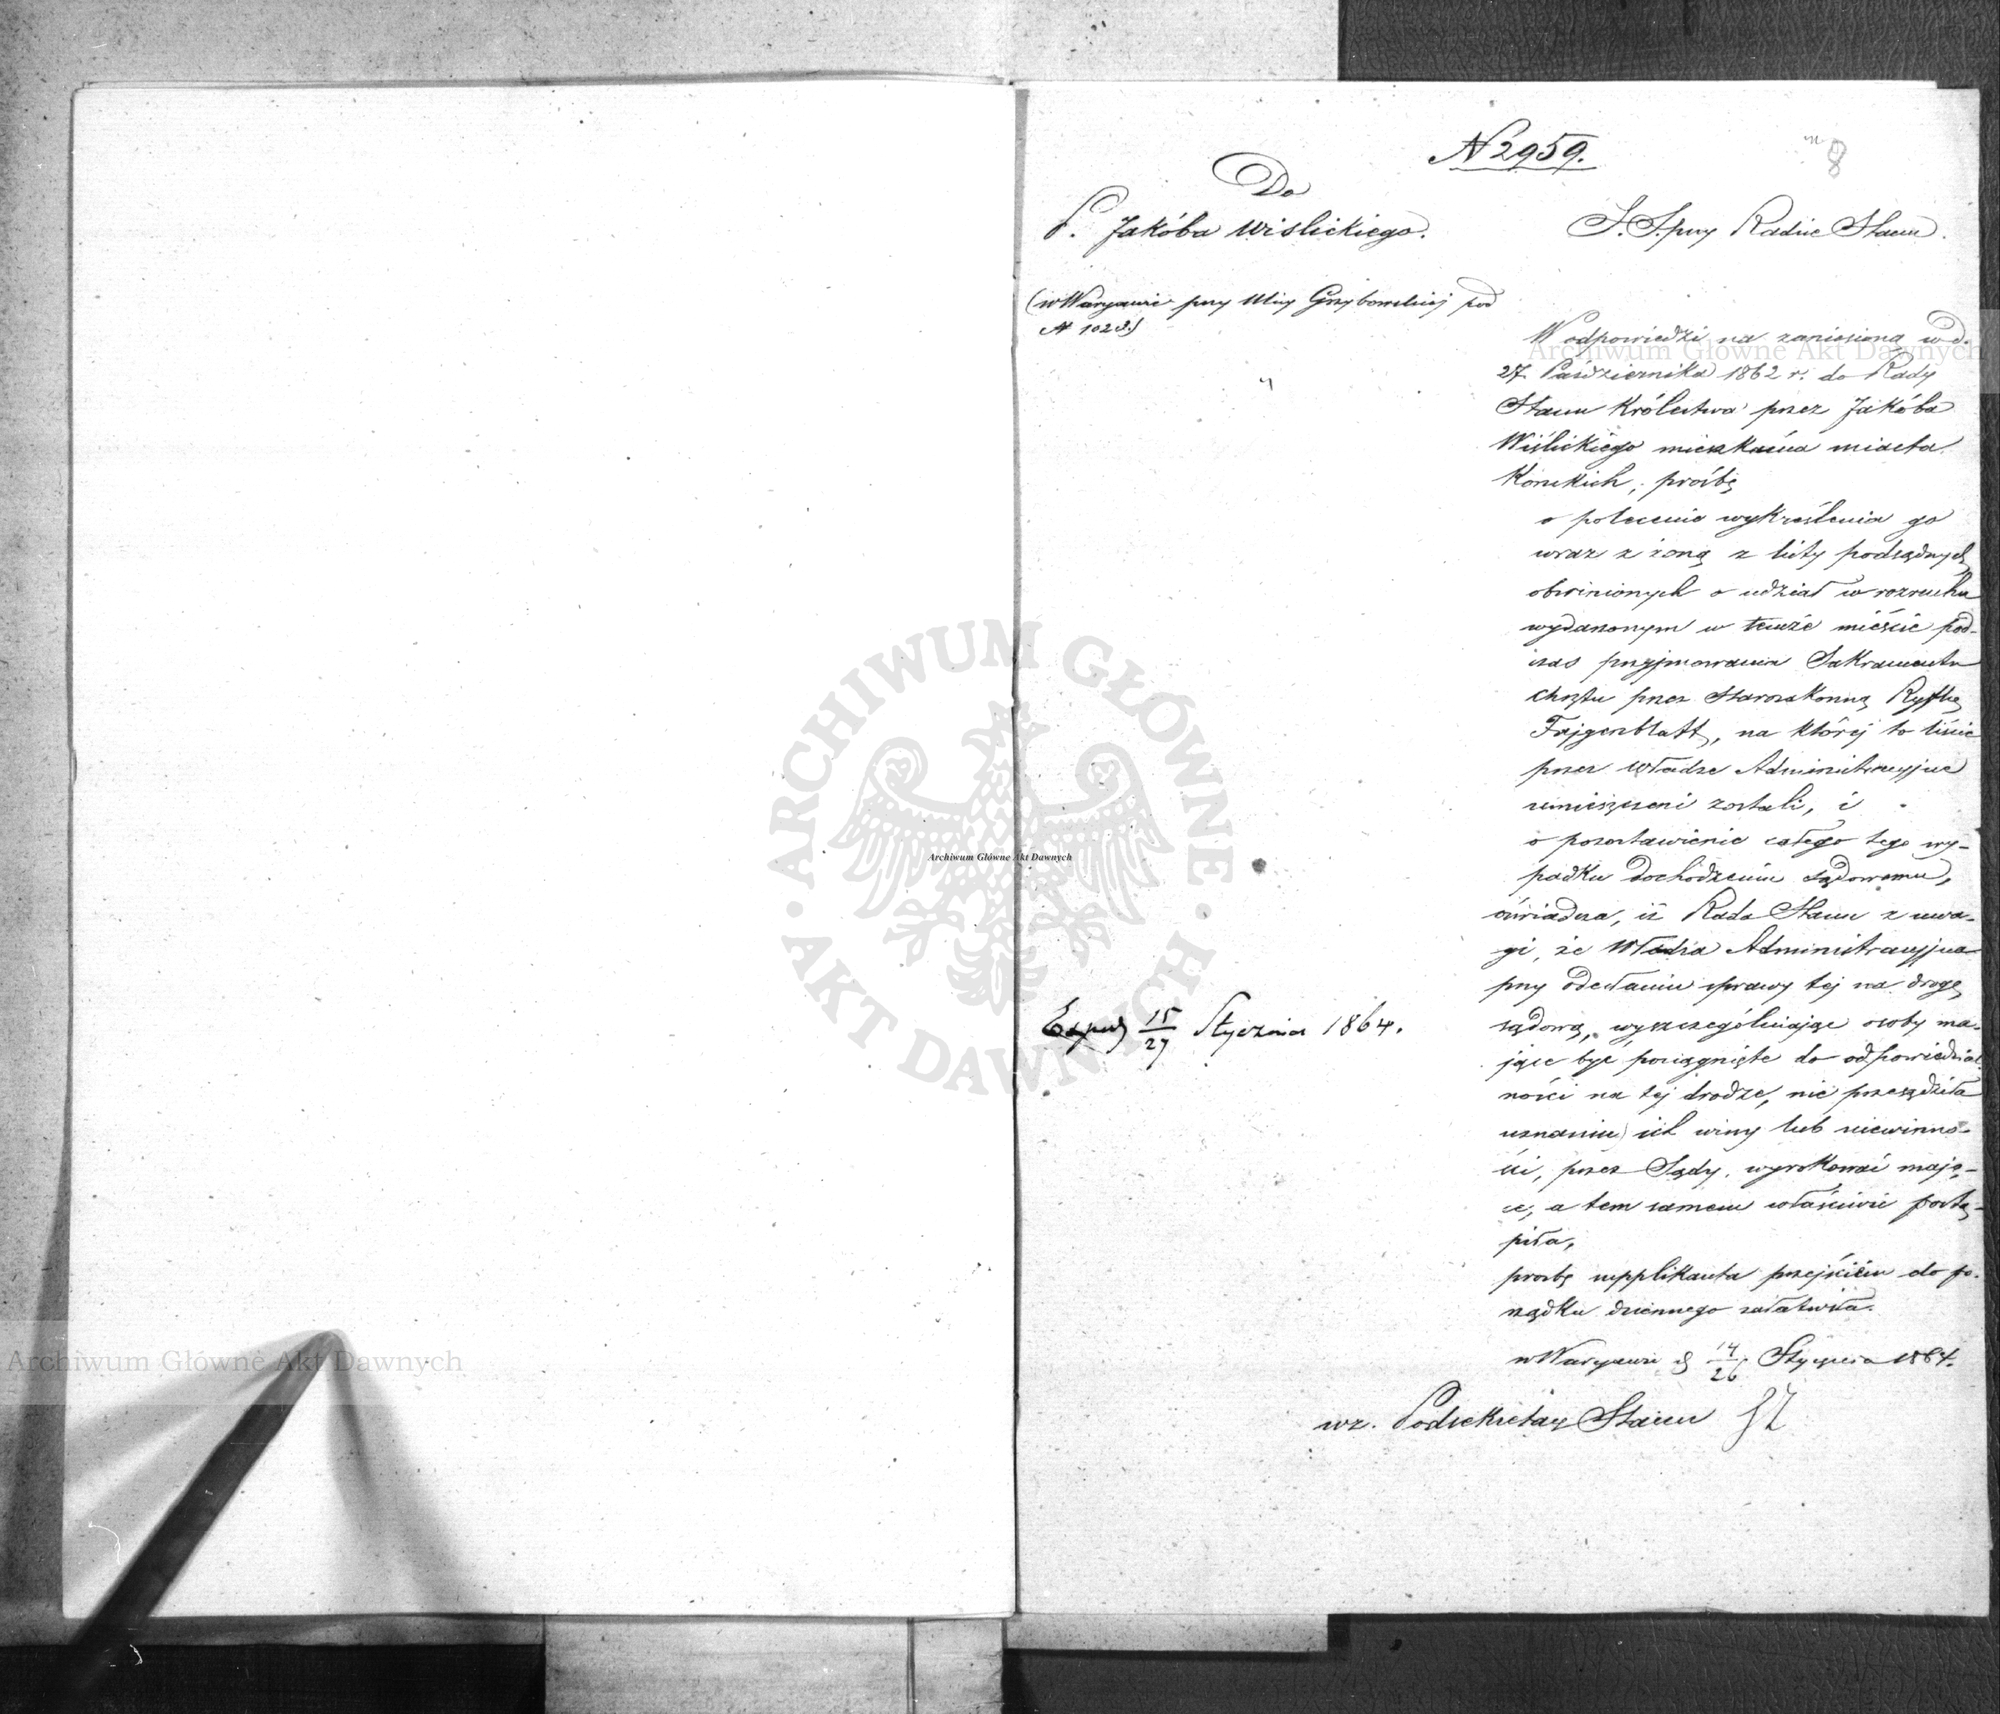 N 2959.
8
Do
P. Jakóba Wislickiego.
(w Warszawie przy Ulicy Grzybowskiej pod
N 1028)
S. S. przy Radzie Stanu.
W odpowiedzi na zaniesioną w d.
27 Października 1862 r. do Rady
Stanu Królestwa przez Jakóba
Wiślickiego mieszkańca miasta
Konskich, prośbę
o polecenie wykreślenia go
wraz z żoną z listy podsądnych
obwinionych o udział w rozruchu
wydarzonym w temże mieście pod-
czas przyjmowania Sakramentu
chrztu przez starozakonną Ryfkę
Fajgenblatt, na której to liście
przez Władze Administracyjne
umieszczeni zostali, i
o pozostawienie całego tego wy-
padku dochodzeniu sądowemu,
oświadcza, iż Rada Stanu z uwa-
gi, że Władza Administracyjna
przy odesłaniu sprawy tej na drogę
sądową, wyszczególniając osoby ma-
jące być pociągnięte do odpowiedzial-
ności na tej drodze, nie przesądziła
uznaniu ich winy lub niewinno-
ści, przez Sądy, wyrokować mają-
ce, a tem samem właściwie postą-
piła,
prośbę supplikanta przejściem do po-
rządku dziennego załatwiła.
w Warszawie d 14/26 Stycznia 1864.
wz. Podsekretarz Stanu
15/27 Stycznia 1864.
Archiwum Główne Akt Dawnych
ARCHIWUM GŁÓWNE
AKT DAWNYCH
Archiwum Główne Akt Dawnych
Archiwum Główne Akt Dawnych